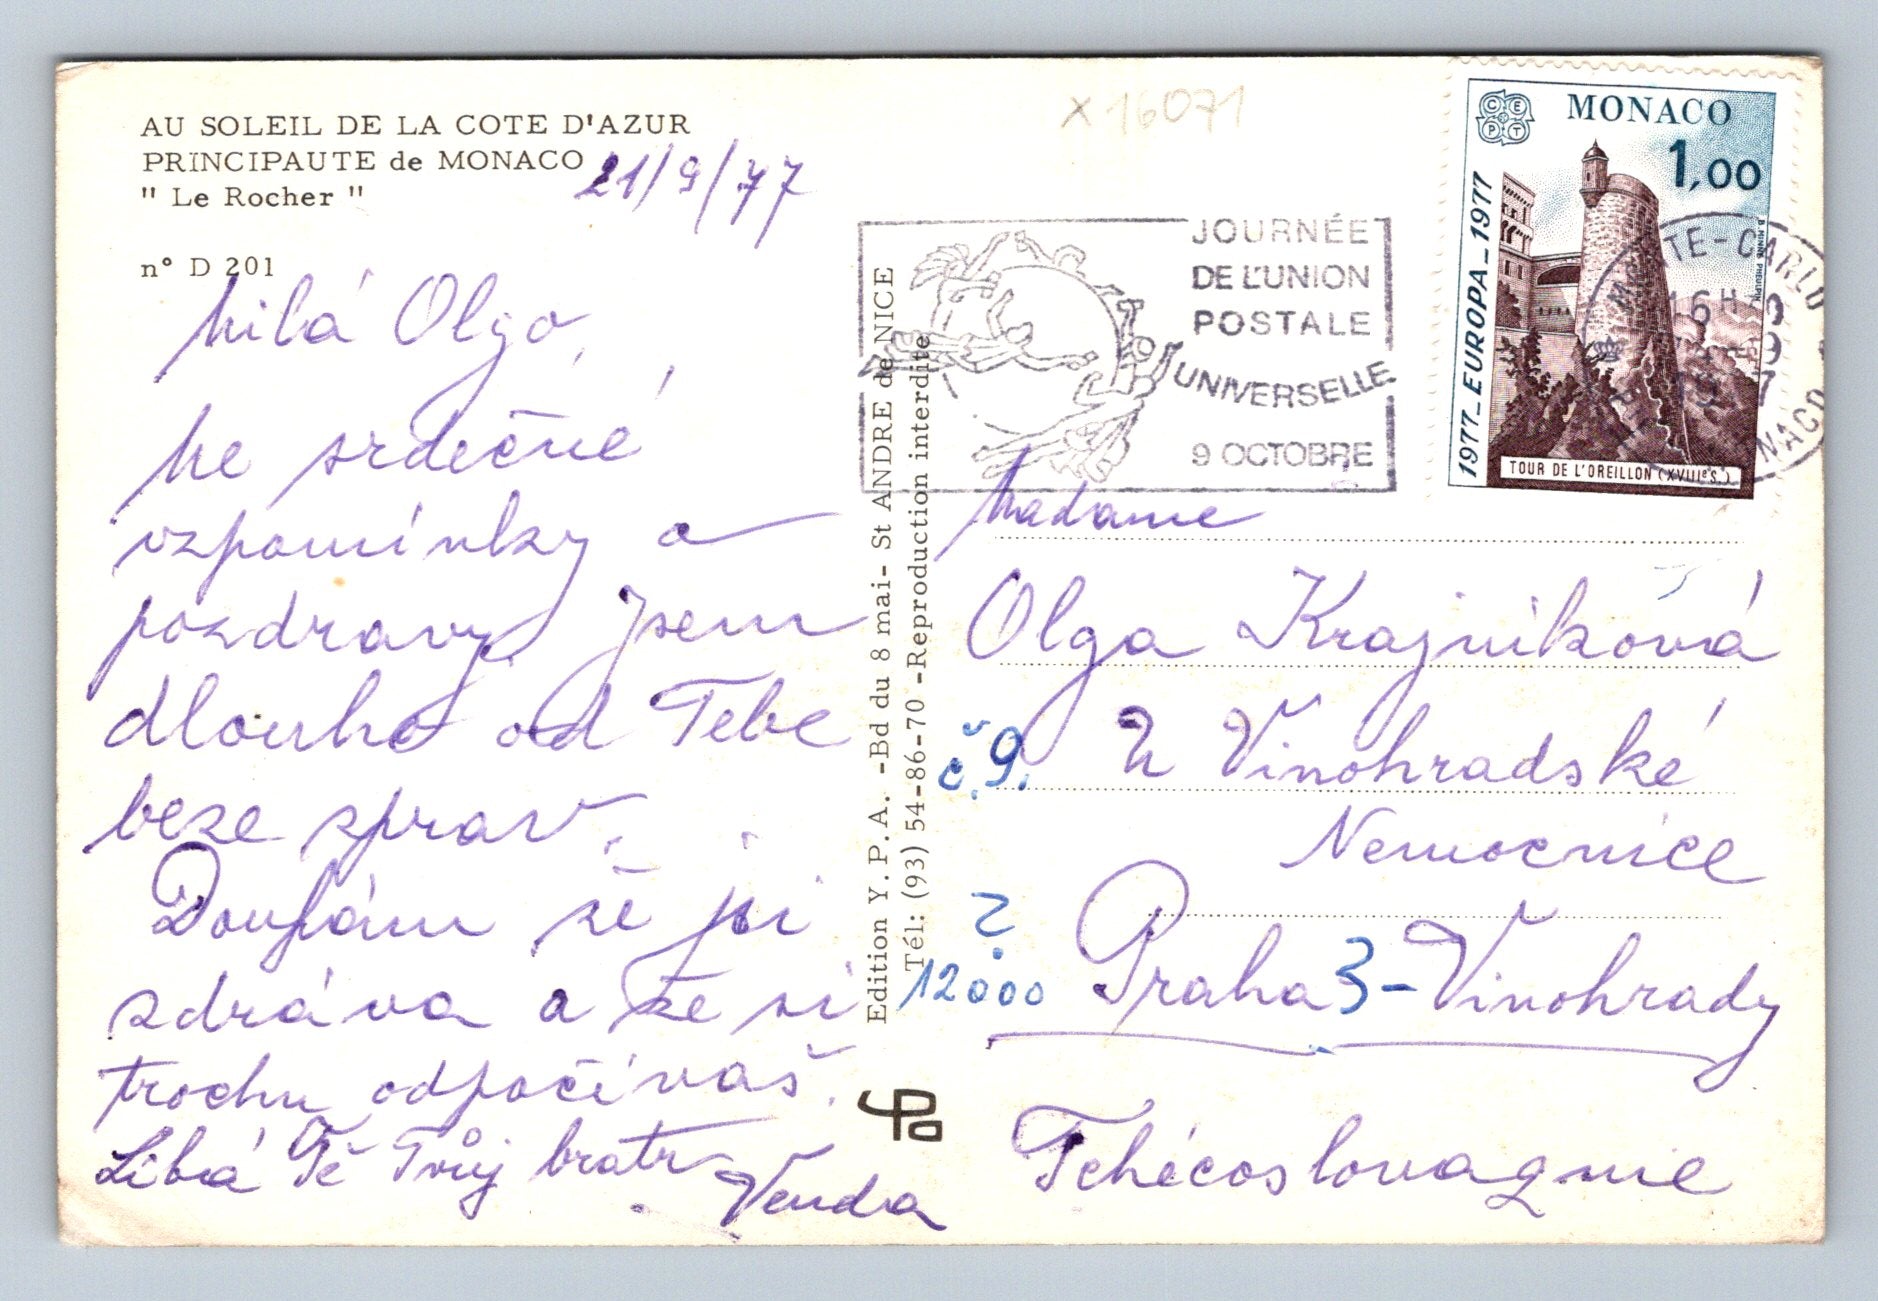 AU SOLEIL DE LA COTE D'AZUR
PRINCIPAUTE de MONACO
" Le Rocher "
21/9/77
n° D 201
Milá Olgo,
Mé srdečné
vzpomínky a
pozdravy. Jsem
dlouho od Tebe
beze zprav.
Doufám že jsi
zdráva a že si
trochu odpočíváš.
Líbá Tě Tvůj bratr
Venda
x 16071
JOURNÉE
DE L'UNION
POSTALE
UNIVERSELLE
9 OCTOBRE
CEPT
MONACO
1,00
1977_EUROPA_1977
TOUR DE L'OREILLON (XVIIIe S.)
MONTE-CARLO
16H
MONACO
Edition Y.P.A. -Bd du 8 mai- St ANDRE de NICE
Tél: (93) 54-86-70 -Reproduction interdite
Madame
Olga Krajníková
č. 9. U Vinohradské
Nemocnice
?
12000 Praha 3-Vinohrady
Tchécoslovaquie